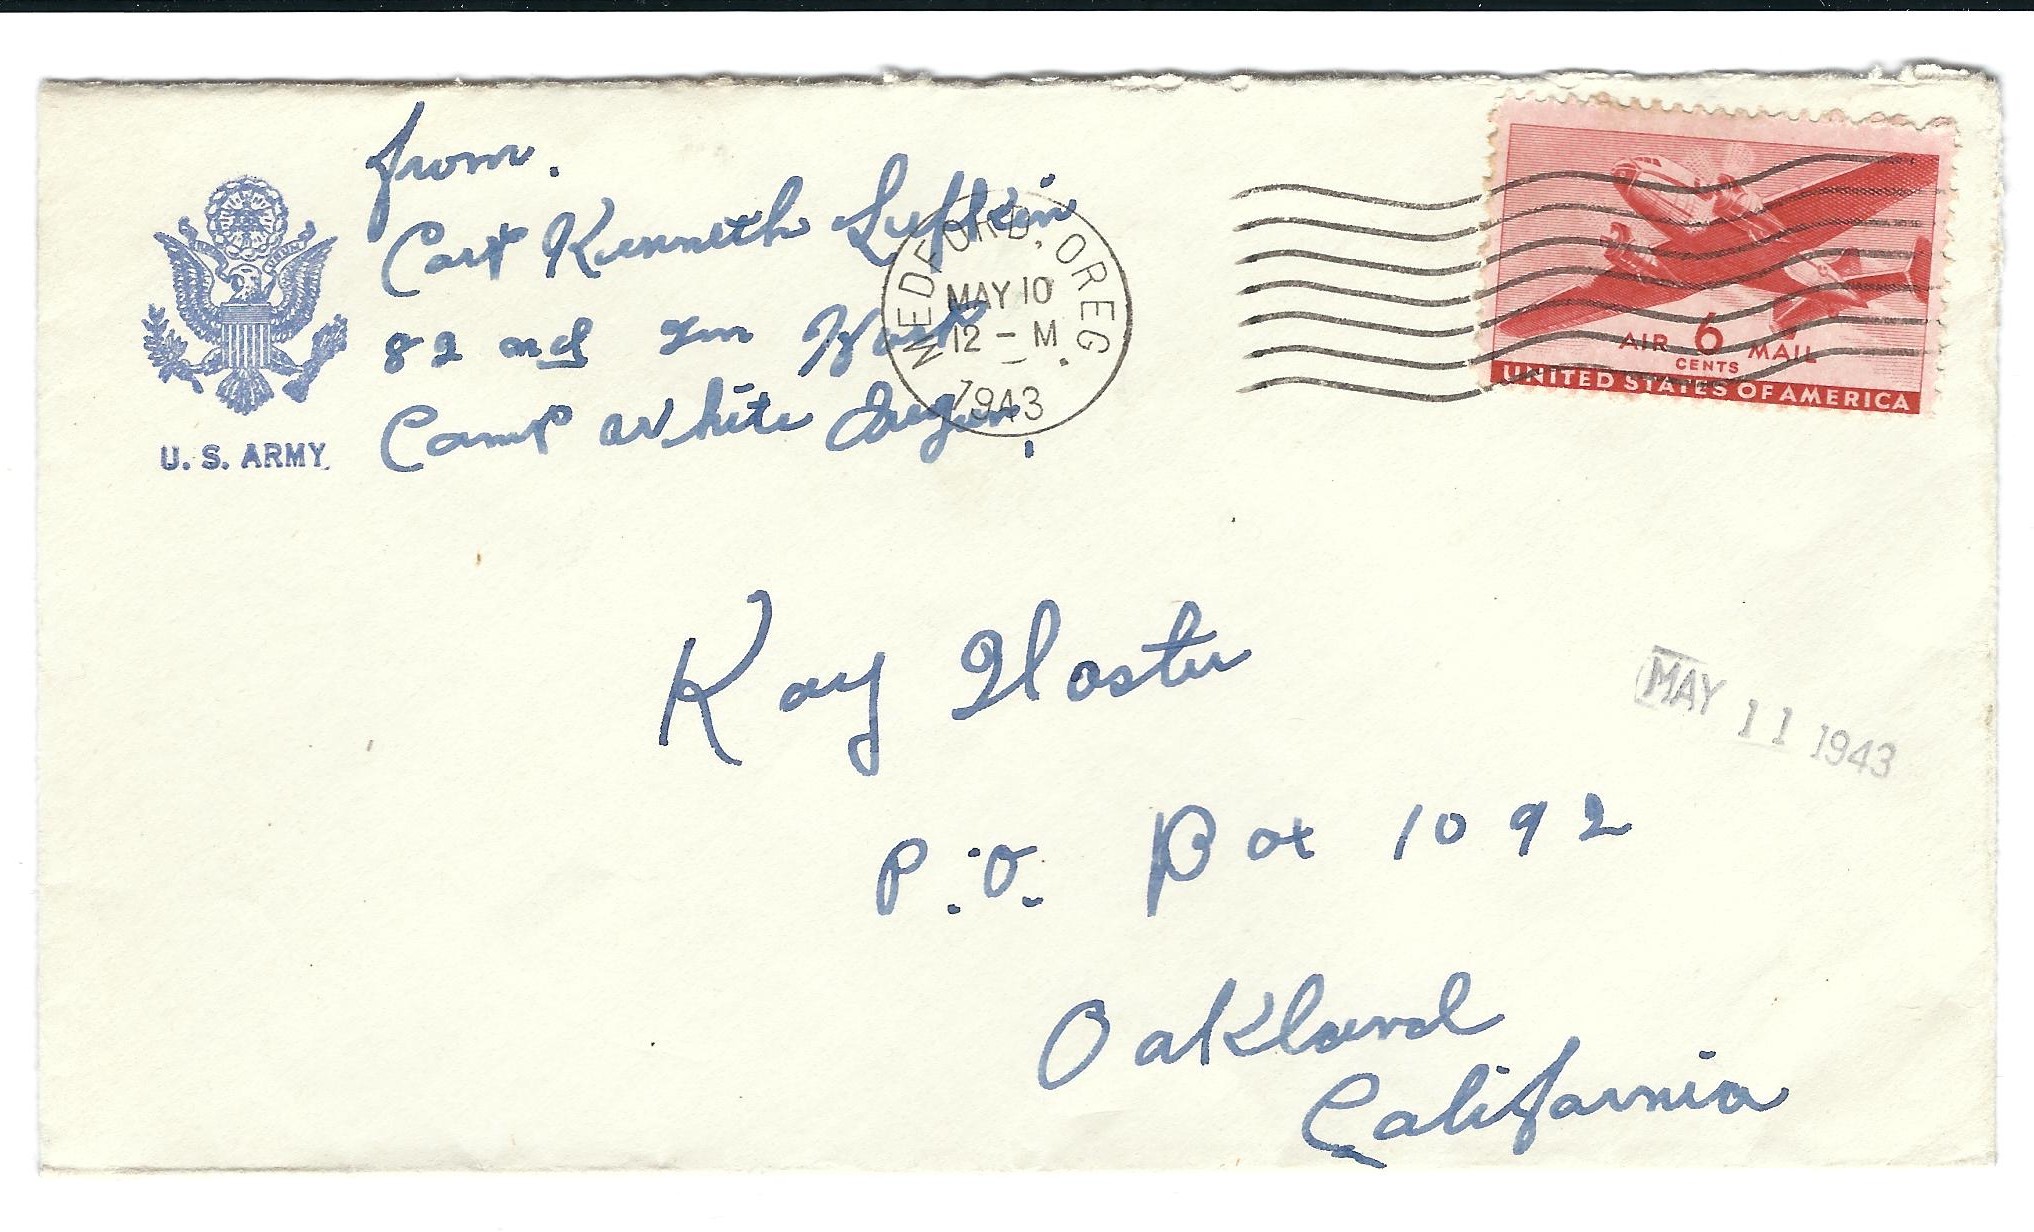 from.
Capt Kenneth Lufkin
82 nd Gn Hosp
Camp White Oregon.
U. S. ARMY.
MEDFORD, OREG.
MAY 10
12 - M
1943
AIR 6 MAIL
CENTS
UNITED STATES OF AMERICA
Kay Hoster
MAY 11 1943
P.O. Box 1092
Oakland
California